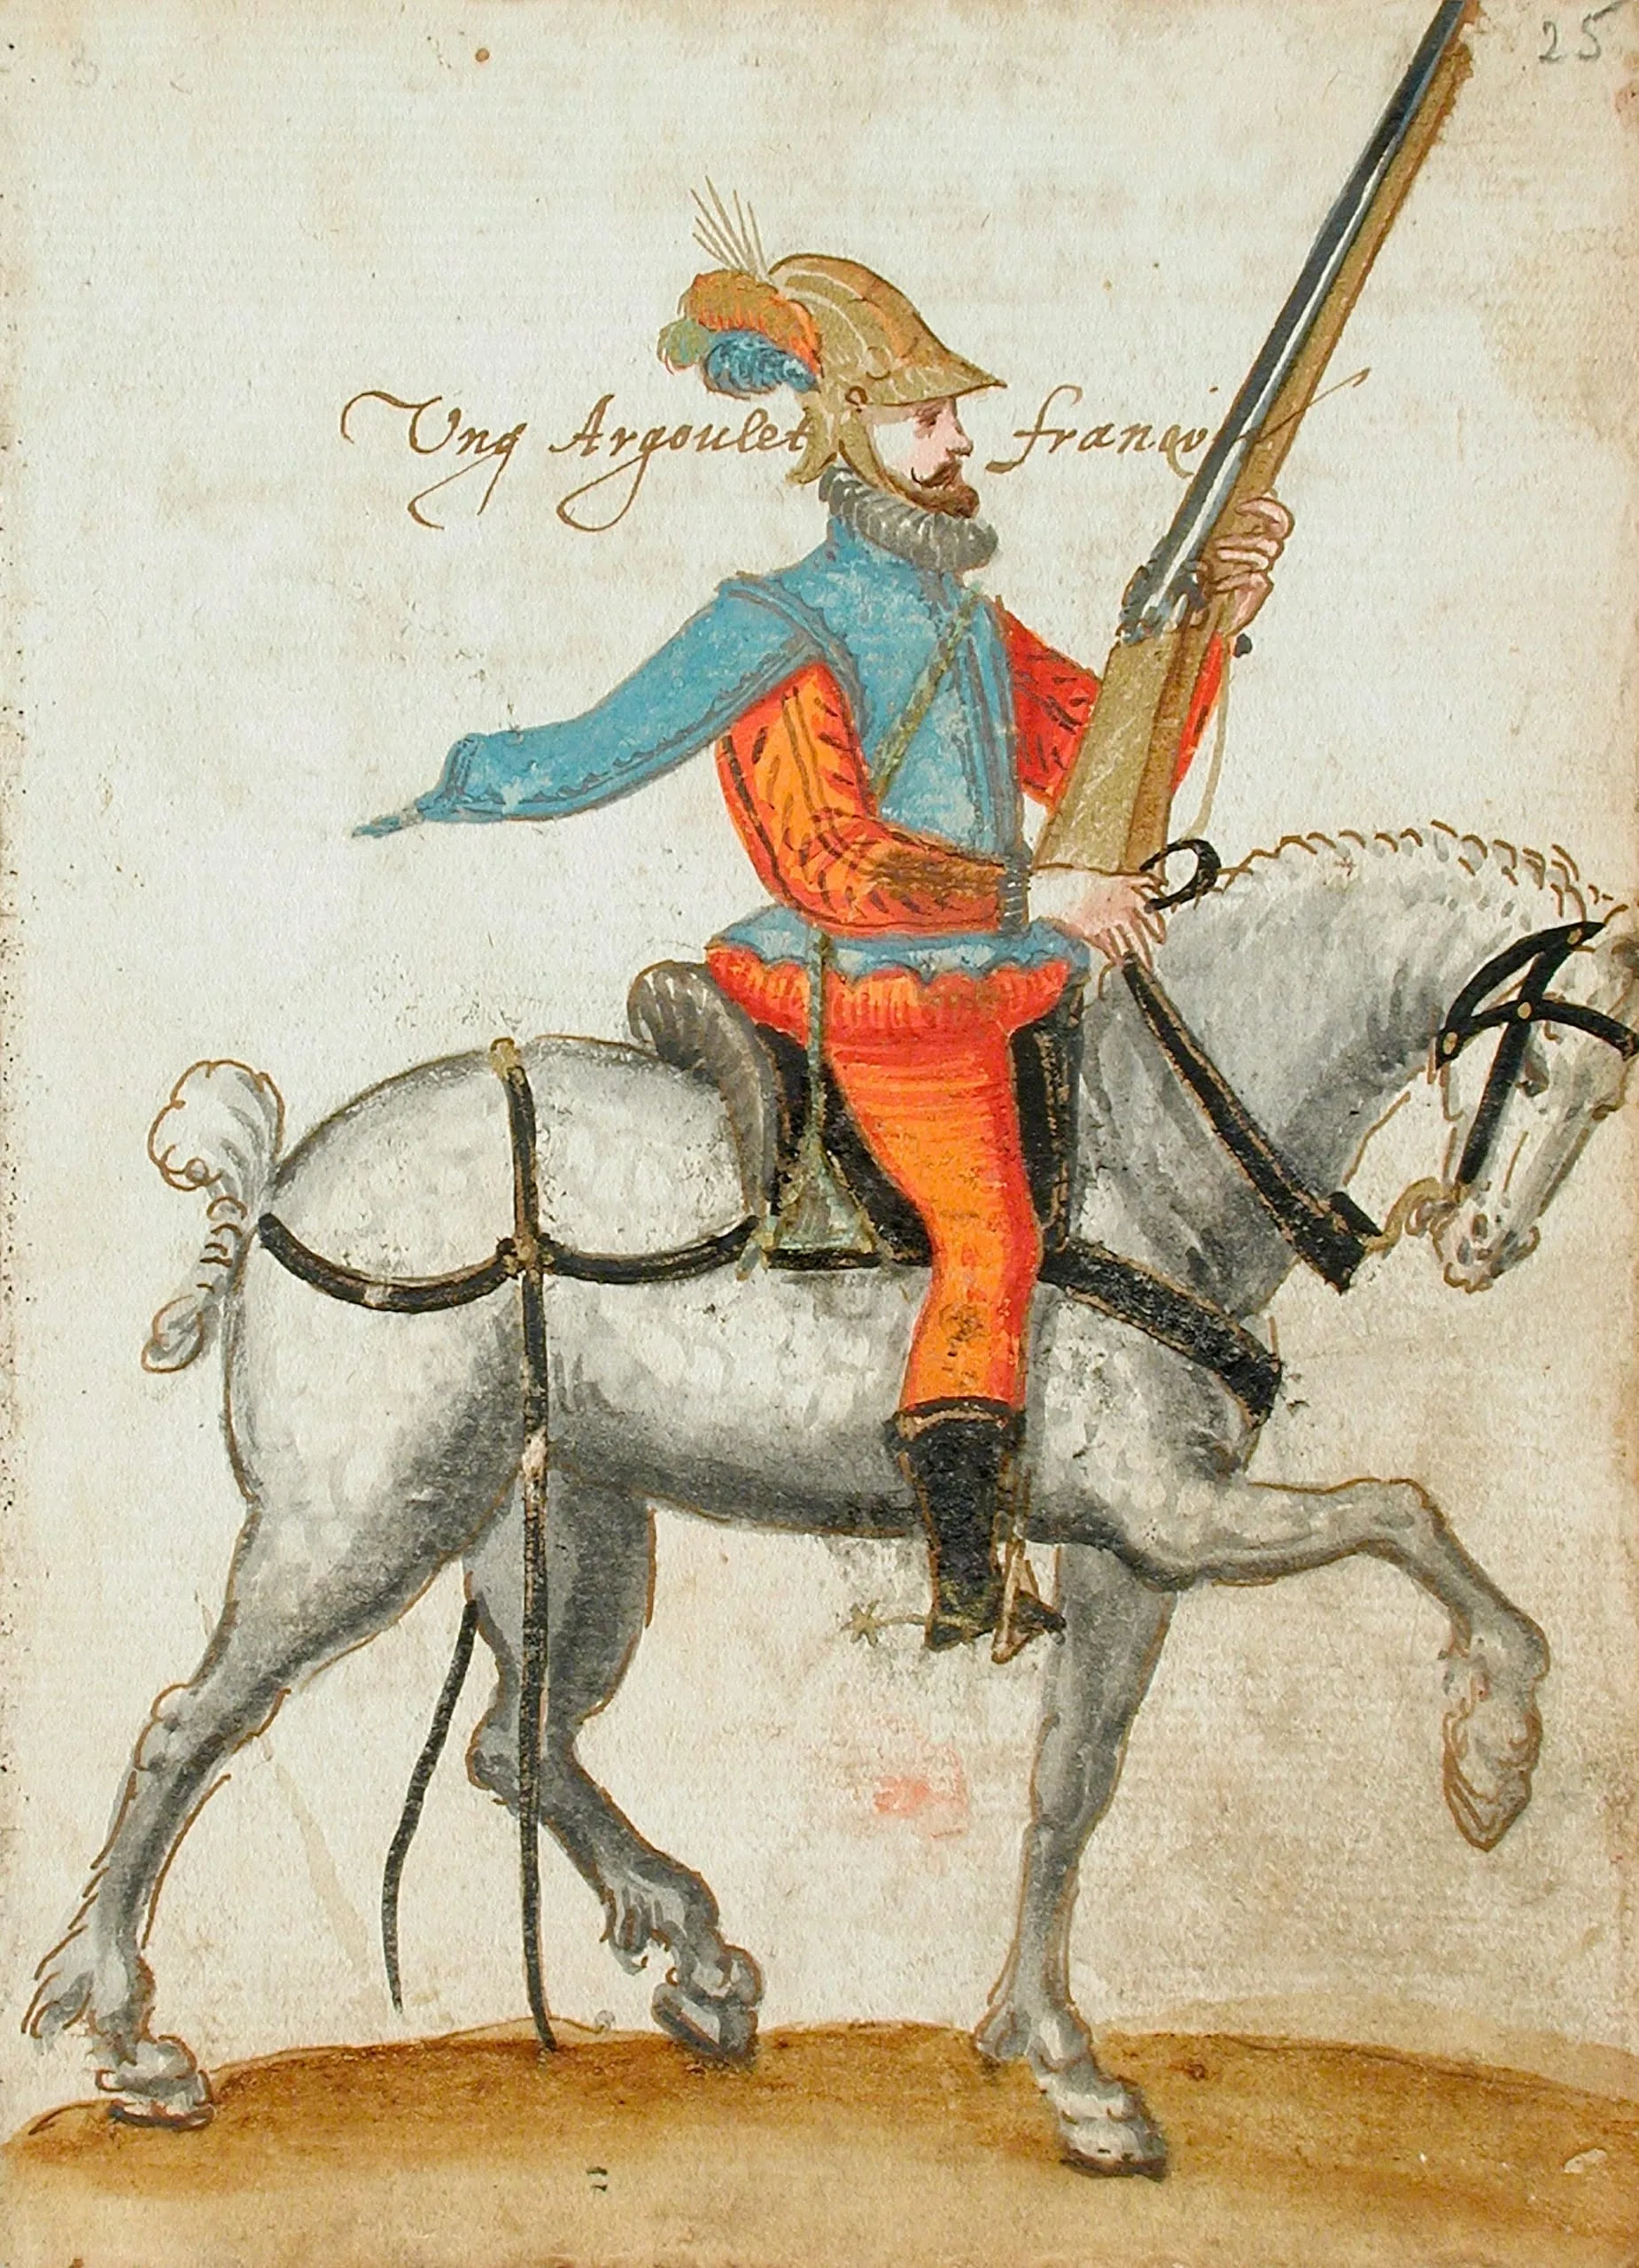 25
Ung Argoulet françoi